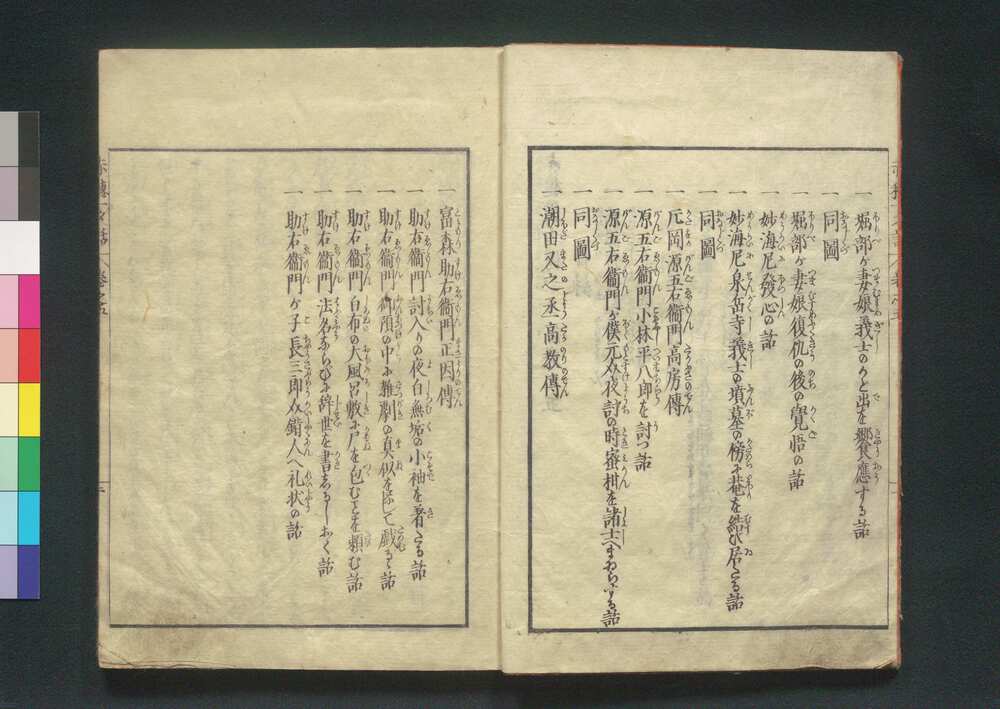 一 堀部が妻娘義士のかと出を饗應する話
一 同圖
一 堀部が妻娘復仇の後の覚悟の話
一 妙海尼發心の話
一 妙海尼泉岳寺義士の墳墓の傍に菴を結び居たる話
一 同圖
一 片岡源五右衞門高房傳
一 源五右衞門小林平八郎を討つ話
一 源五右衞門が僕元助夜討の時蜜柑を諸士へまゐらする話
一 同圖
一 潮田又之丞高教傳
一 富森助右衞門正因傳
一 助右衞門討入りの夜白無垢の小袖を着たる話
一 助右衞門御預の中に難劇の真似をして戯るゝ話
一 助右衞門白布の大風呂敷に尸を包むことを頼む話
一 助右衞門法名ならびに辞世を書きしるしおく話
一 助右衞門が子長三郎介錯人へ礼状の話